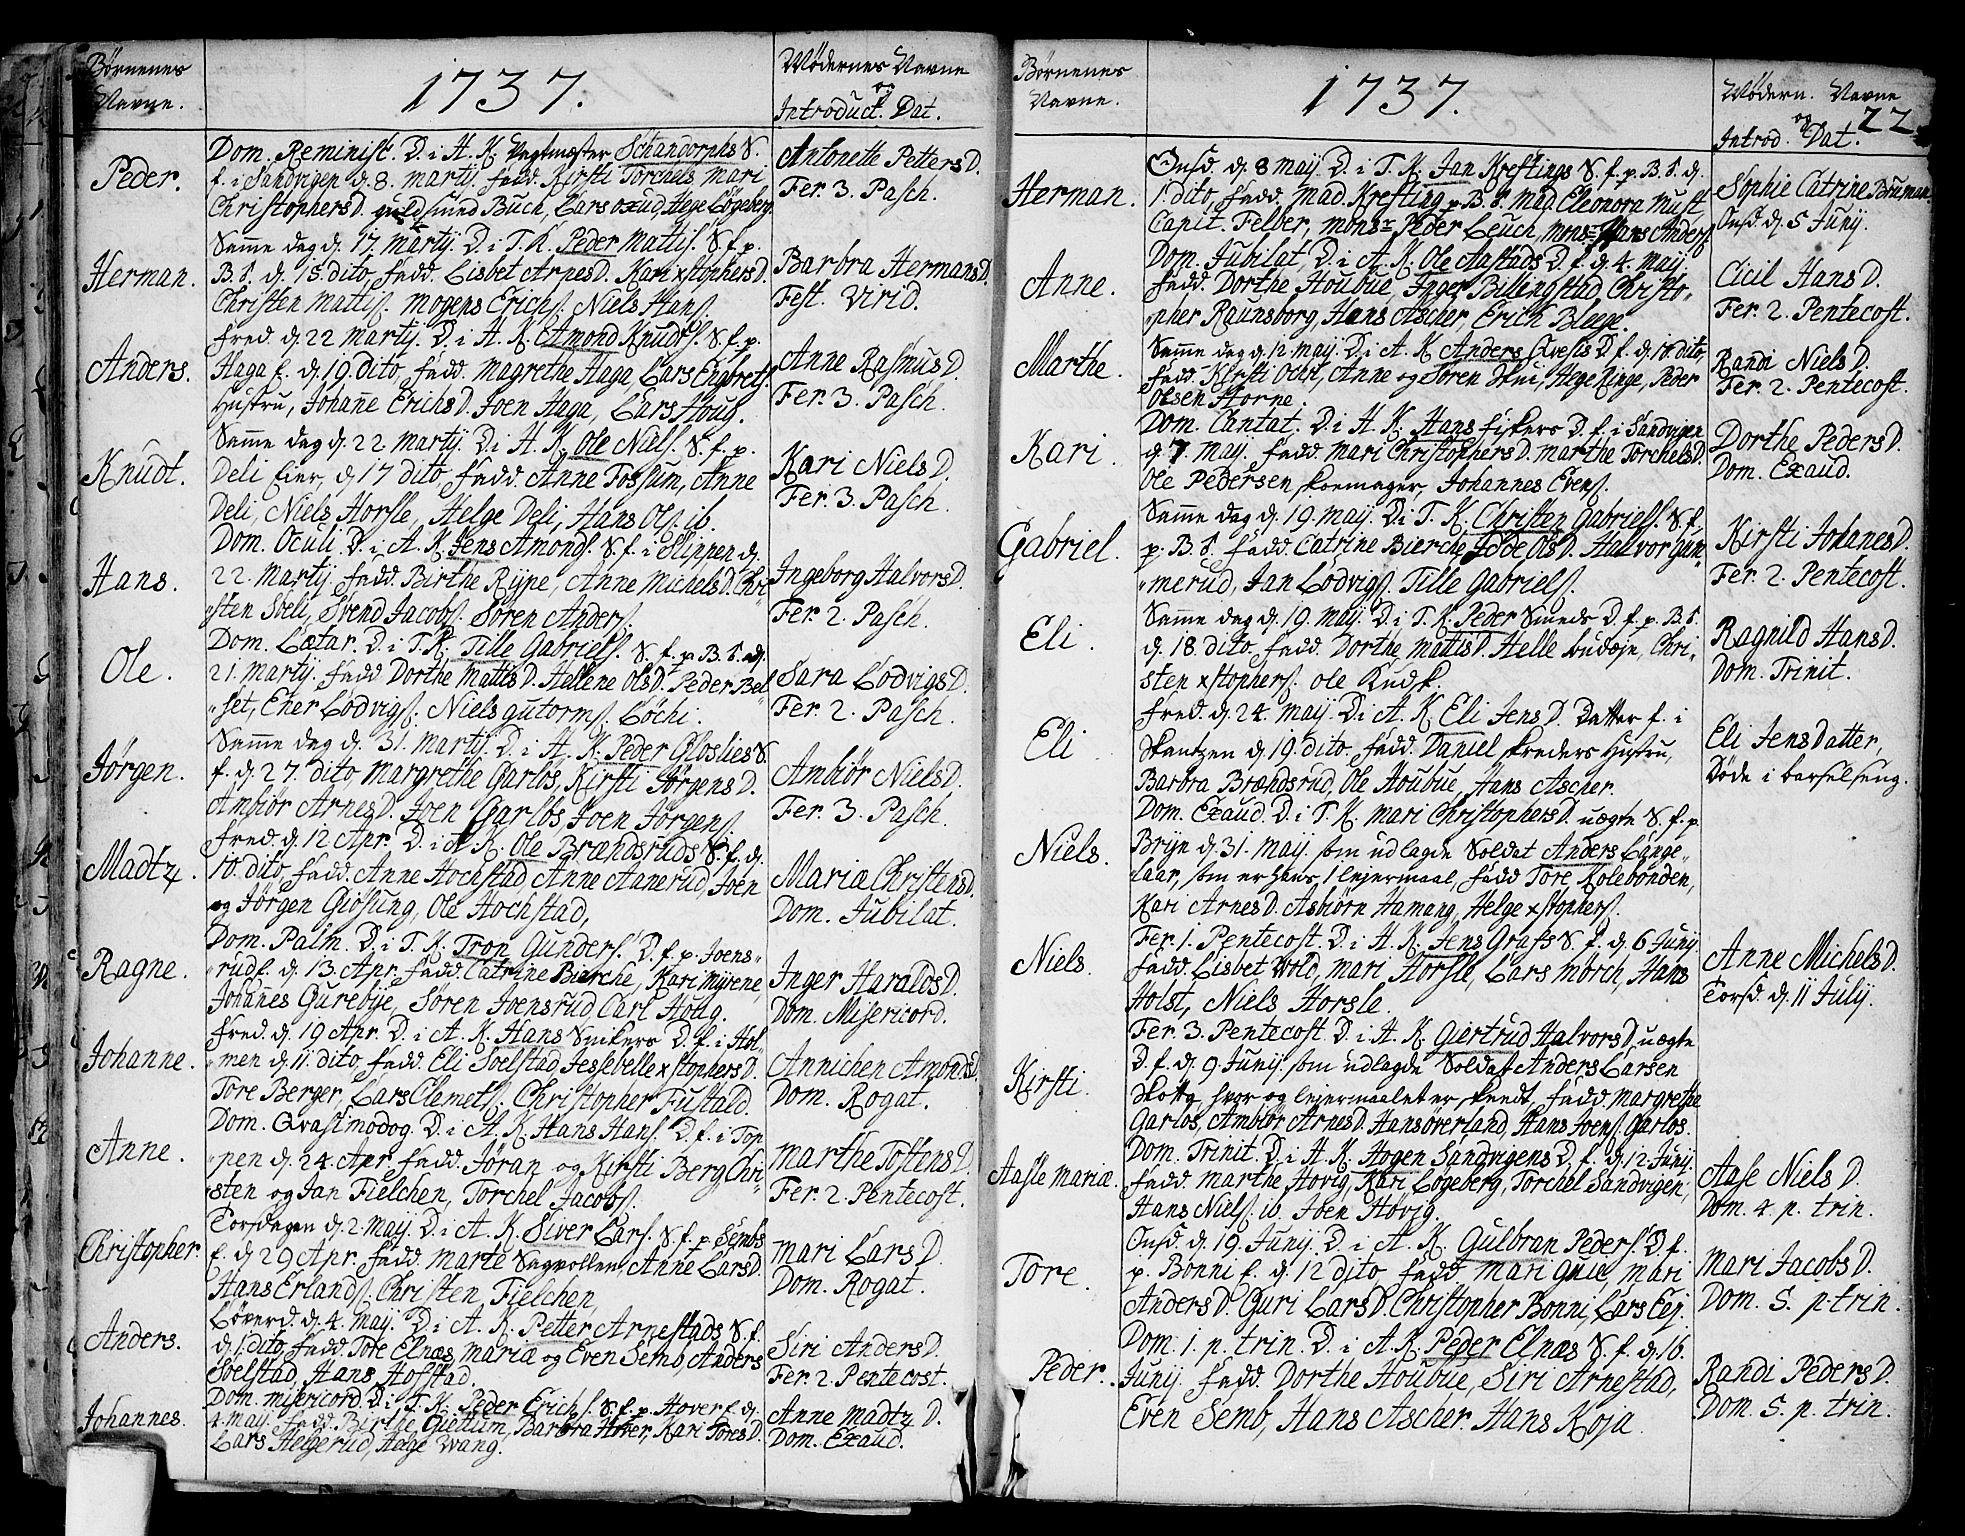 Børnenes
Navne.
1737.
Mødernes Navne
og
Introduct. Dat.
Peder.
Dom. Reminisc. D. i A. K. Vegtmester Schandorphs S.
f. i Sandvigen d. 8. Martij. fadd. Kirsti Torchels Mari
Christophers D. guldsmed Buch, Lars oxud, Hege Løgeberg.
Antonette Petters D.
Fer. 3. Pasch.
Herman.
Samme dag d. 17. Martij. D. i T. K. Peder Mattis. S. f. p.
B. S. d. 15. dito, fadd. Lisbet Arnes D. Kari xstophers D.
Christen Mattis. Mogens Erichs. Niels Hans.
Barbra Hermans D.
Fest. Virid.
Anders.
Fred. d. 22 Martij. D. i A. K. Amond Knuds. S. f. p.
Haga f. d. 19. dito, fadd. Magrethe Haga, Lars Engbrets
Hustru, Johane Erichs D. Joen Haga, Lars Houg.
Anne Rasmus D.
Fer. 3. Pasch.
Knudt.
Samme dag d. 22. Martij. D. i A. K. Ole Niels. S. f. p.
Deli Eier, d. 17 dito, fadd. Anne Fossum, Anne
Deli, Niels Horsle, Helge Deli, Hans Ols. ib.
Kari Niels D.
Fer. 3. Pasch.
Hans.
Dom. Oculi. D. i A. K. Jens Amonds. S. f. i Slippen d.
22. Martij. fadd. Birthe Rype, Anne Michels D. Chri-
sten Sveli, Svend Jacobs. Søren Anders.
Ingeborg Halvors D.
Fer. 2. Pasch.
Ole.
Dom. Lætar. D. i T. K. Tille Gabriels. S. f. p. B. S. d.
21. Martij. fadd. Dorthe Mattis D. Hellene Ols D. Peder Bel-
set, Ener Lodvigs. Niels gutorms. Løchi.
Sara Lodvigs D.
Fer. 2. Pasch.
Jørgen.
Samme dag d. 31. Martij. D. i A. K. Peder Gloslies S.
f. d. 27. dito, Margrethe Garlos, Kirsti Jørgens D.
Ambiør Arnes D. Joen Garlos Joen Jørgens.
Ambiør Niels D.
Fer. 3. Pasch.
Madtz.
Fred. d. 12 Apr. D. i A. K. Ole Brændsruds S. f. d.
10. dito, fadd. Anne Hochstad, Anne Aanerud, Joen
og Jørgen Giøsung, Ole Hochstad,
Mariæ Christens D.
Dom. Jubilat.
Ragne.
Dom. Palm. D. i T. K. Tron Gunders. D. f. p. Joens-
rud f. d. 13. Apr. fadd. Catrine Bierche, Kari Myrene,
Johannes Gurebye, Søren Joensrud, Carl Houg.
Inger Haralds D.
Dom. Misericord.
Johanne.
Fred. d. 19 Apr. D. i A. K. Hans Snikers D. f. i Hol-
men d. 11 dito, fadd. Eli Soelstad, Jessebelle xstophers D.
Tore Berger, Lars Clemets. Christopher Fustald.
Annichen Amonds D.
Dom. Rogat.
Anne.
Dom. Qvasimodog. D. i A. K. Hans Hans. D. f. i Top-
pen d. 24. Apr. fadd. Jøran og Kirsti Berg Chri-
sten og Jan Fielchen, Torchel Jacobs.
Marthe Tostens D.
Fer. 2. Pentecost.
Christopher.
Torsdagen d. 2. Maij. D. i A. K. Siver Lars. S. f. p. Sembs
f. d. 29 Apr. fadd. Marte Sagvollen, Anne Lars D.
Hans Erlands. Christen Fielchen,
Mari Lars D.
Dom. Rogat.
Anders.
Løverd. d. 4. Maij. D. i A. K. Petter Arnestads S. f.
d. 1. dito, fadd. Tore Elnæs, Mariæ og Even Semb, Anders
Soelstad, Hans Hofstad.
Siri Anders D.
Fer. 2. Pentecost.
Johannes.
Dom. Misericord. D. i T. K. Peder Erichs. S. f. p. Hover f. d.
4. Maij. fadd. Birthe Gjettum, Barbra Hover, Kari Tores D.
Lars Helgerud, Helge Wang.
Anne Madtz D.
Dom. Exaud.
Børnenes
Navne.
1737.
Mødern. Navne
og
Introd. Dat.
22
Herman.
Onsd. d. 8 Maij. D. i T. K. Jan Kreftings S. f. p. B. S. d.
1. dito, fadd. Mad. Krefting p. B. S. Mad. Eleonora Must,
Capit. Felber, Monsr Peder Leuch, Monsr Hans Anders.
Sophie Catrine Bouman
Onsd. d. 5 Junij.
Anne.
Dom. Jubilat, D. i A. K. Ole Aastads D. f. d. 4. Maij
fadd. Dorthe Houbue, Inger Billingstad, Christo-
pher Raunsborg, Hans Ascher, Erich Bleege.
Cicil Hans D.
Fer. 2. Pentecost.
Marthe.
Samme dag d. 12 Maij. D. i A. K. Anders Qvesis D. f. d. 10. dito,
fadd. Kirsti Ocht, Anne og Søren Skui, Hege Ringe, Peder
Olsen Horne.
Randi Niels D.
Fer. 2. Pentecost.
Kari.
Dom. Cantat. D. i A. K. Hans fiskers D. f. i Sandvigen
d. 7. Maij. fadd. Mari Christophers D. Marthe Torchels D.
Ole Pedersen skoemager, Johannes Evens.
Dorthe Peders D.
Dom. Exaud.
Gabriel.
Samme dag d. 19. Maij. D. i T. K. Christen Gabriels. S. f.
p. B. S. fadd. Catrine Bierche, Idde Ols D. Halvor Gum-
merud, Jan Lodvigs. Tille Gabriels.
Kirsti Johanes D.
Fer. 2. Pentecost.
Eli.
Samme dag d. 19. Maij. D. i T. K. Peder Smeds D. f. p. B. S.
d. 18. dito, fadd. Dorthe Mattis D. Helle budøje, Chri-
sten xstophers. ole Kudsk.
Ragnild Hans D.
Dom. Trinit.
Eli
Fred. d. 24. Maij. D. i A. K. Eli Jens D. Datter f. i
Skantzen d. 19. dito. fadd. Daniel skreders Hustru,
Barbra Brændsrud, Ole Houbue, Hans Ascher.
Eli Jens Datter,
døde i barselseng.
Niels.
Dom. Exaud. D. i T. K. Mari Christophers D. uægte S. f. p.
Bryn d. 31. Maij. som udlagde Soldat Anders Lange-
laar, som er hans 1 lejermaal, fadd. Tore Kolebonden,
Kari Arnes D. Asbiørn Hamang, Helge xstophers.
Niels.
Fer. 1. Pentecost. D. i A. K. Jens Grafs S. f. d. 6 Junij.
fadd. Lisbet Wold, Mari Horsle, Lars Mørch, Hans
Holst, Niels Horsle.
Anne Michels D.
Torsd. d. 11 Julij.
Kirsti.
Fer. 3. Pentecost. D. i A. K. Giertrud Halvors D. uægte
D. f. d. 9 Junij. som udlagde Soldat Anders Larsen
Skotta, hvor og lejermaalet er skeedt. fadd. Margrethe
Garlos, Ambiør Arnes D. Hans øverland, Hans Joens. Garlos.
Aasle Mariæ.
Dom. Trinit. D. i A. K. Hogen Sandvigens D. f. d. 12 Junij.
fadd. Marthe Hovig, Kari Løgeberg, Torchel Sandvigen,
Hans Niels. ib. Joen Høvig.
Aase Niels D.
Dom. 4. p. trin.
Tore.
Onsd. d. 19. Junij. D. i A. K. Gulbran Peders. D. f.
p. Bonni f. d. 12 dito, fadd. Mari Guie, Mari
Anders D. Guri Lars D. Christopher Bonni, Lars Eej.
Mari Jacobs D.
Dom. 5. p. trin.
Peder.
Dom. 1. p. trin. D. i A. K. Peder Elnæs S. f. d. 16.
Junij. fadd. Dorthe Houbue, Siri Arnestad,
Even Semb, Hans Ascher. Hans Koja.
Randi Peders D.
Dom. 5. p. trin.